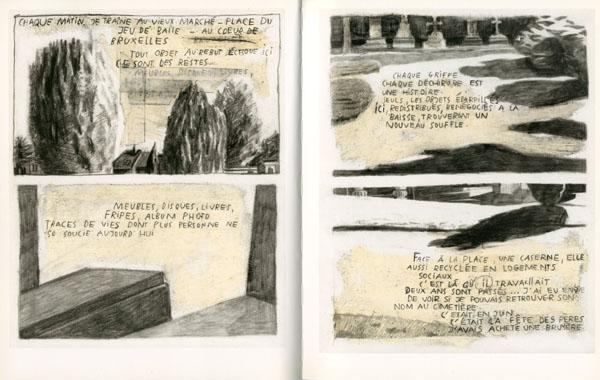 CHAQUE MATIN, JE TRAÎNE AU VIEUX MARCHÉ - PLACE DU
JEU DE BALLE - AU COEUR DE
BRUXELLES
TOUT OBJET AU REBUT ÉCHOUE ICI
CE SONT DES RESTES
MEUBLES, DISQUES, LIVRES,
MEUBLES, DISQUES, LIVRES,
FRIPES, ALBUM PHOTO
TRACES DE VIES DONT PLUS PERSONNE NE
SO SOUCIE AUJOURD'HUI
CHAQUE GRIFFE
CHAQUE DÉCHIRURE EST
UNE HISTOIRE.
SEULS, LES OBJETS ÉPARPILLÉS
ICI, REDISTRIBUÉS, RENÉGOCIÉS À LA
BAISSE, TROUVERONT UN
NOUVEAU SOUFFLE.
FACE À LA PLACE, UNE CASERNE, ELLE
AUSSI RECYCLÉE EN LOGEMENTS
SOCIAUX
C'EST LÀ QU'IL TRAVAILLAIT
DEUX ANS SONT PASSÉS... J'AI EU ENVIE
DE VOIR SI JE POUVAIS RETROUVER SON
NOM AU CIMETIÈRE.
C'ÉTAIT EN JUIN
C'ÉTAIT LA FÊTE DES PÈRES
J'AVAIS ACHETÉ UNE BRUYÈRE.